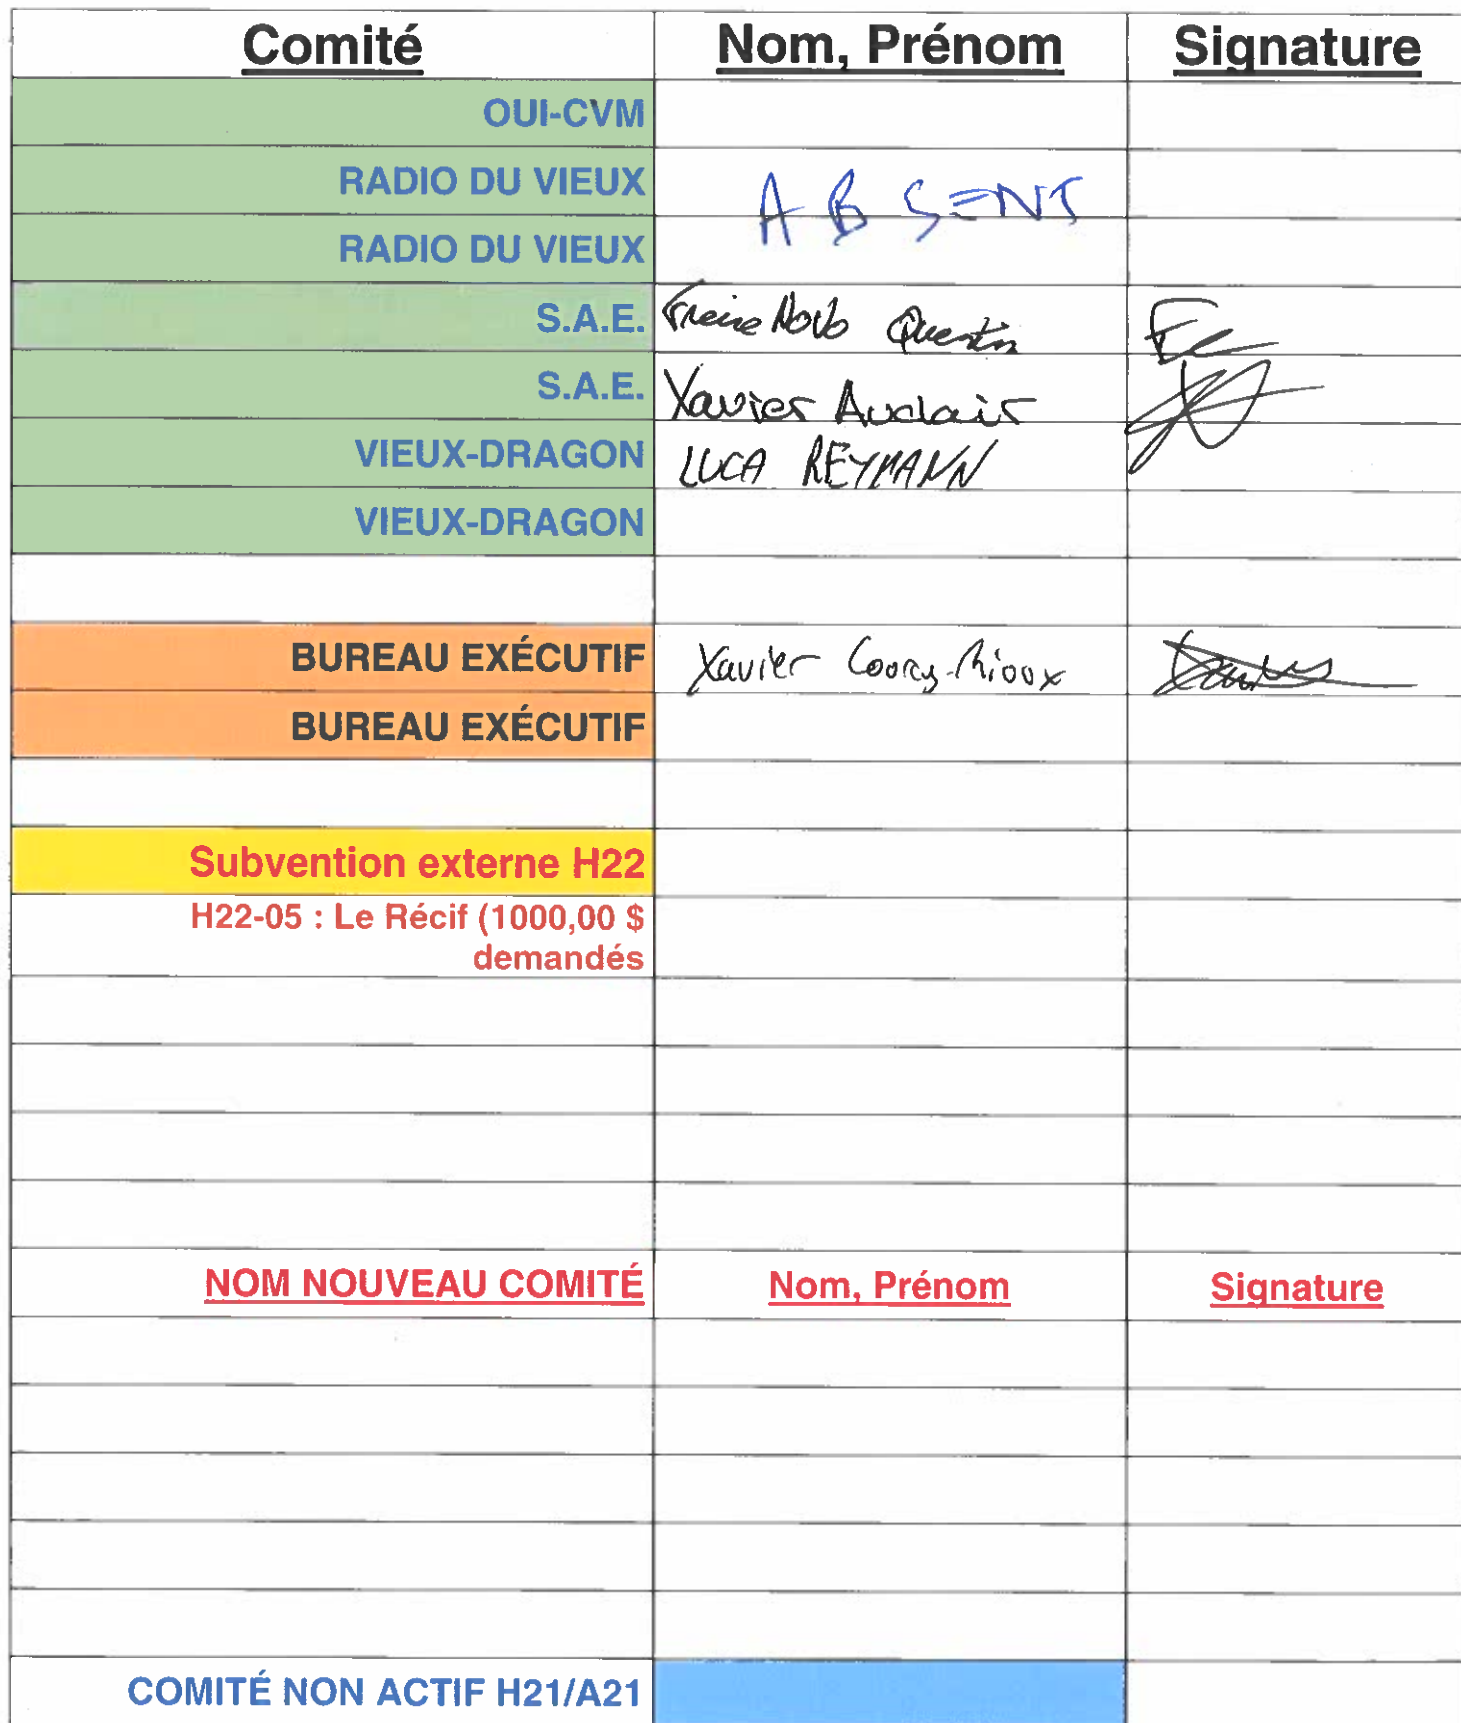 Comité Nom, Prénom Signature
OUI-CVM
RADIO DU VIEUX
ABSENT
RADIO DU VIEUX
S.A.E. Freire Novo Quentin
S.A.E. Xavier Auclair
VIEUX-DRAGON LUCA REYMANN
VIEUX-DRAGON
BUREAU EXÉCUTIF Xavier Coury-Rioux
BUREAU EXÉCUTIF
Subvention externe H22
H22-05 : Le Récif (1000,00 $
demandés
NOM NOUVEAU COMITÉ Nom, Prénom Signature
COMITÉ NON ACTIF H21/A21